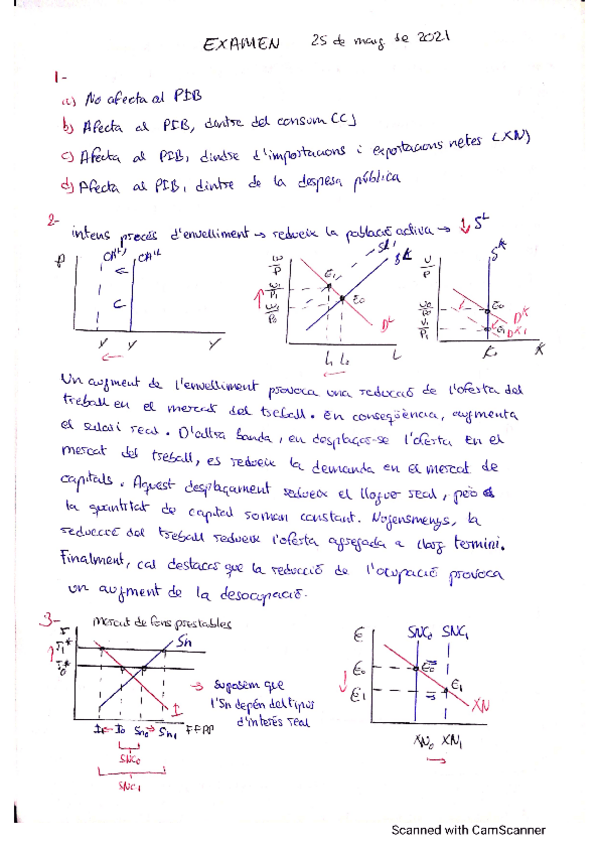 EXAMEN 25 de març de 2021
1-
a) No afecta al PIB
b) Afecta al PIB, dintre del consum (C)
c) Afecta al PIB, dindre d'importacions i exportacions netes (XN)
d) Afecta al PIB, dintre de la despesa pública
2-
intens procés d'envelliment → redueix la població activa → ↓ S^L
P
Y Y Y
W/P
E1
E0
D^L
L1 L0 L
U/P
S^K
E0
E1
D^K
D^K1
K0 K
Un augment de l'envelliment provoca una reducció de l'oferta del
treball en el mercat del treball. En conseqüència, augmenta
el salari real. D'altra banda, en desplaçar-se l'oferta en el
mercat del treball, es redueix la demanda en el mercat de
capitals. Aquest desplaçament redueix el lloguer real, però
la quantitat de capital roman constant. Nogensmenys, la
reducció del treball redueix l'oferta agregada a llarg termini.
Finalment, cal destacar que la reducció de l'ocupació provoca
un augment de la desocupació.
3-
mercat de fons prestables
r
r1*
r0*
Sn
I
I1 ← I0 Sn0 → Sn1 FFPP
SNC0
SNC1
→ Suposem que
l'Sn depèn del tipus
d'interès real
ε
SNC0 SNC1
ε0
ε1
E0
E1
XN
XN0 XN1
Scanned with CamScanner